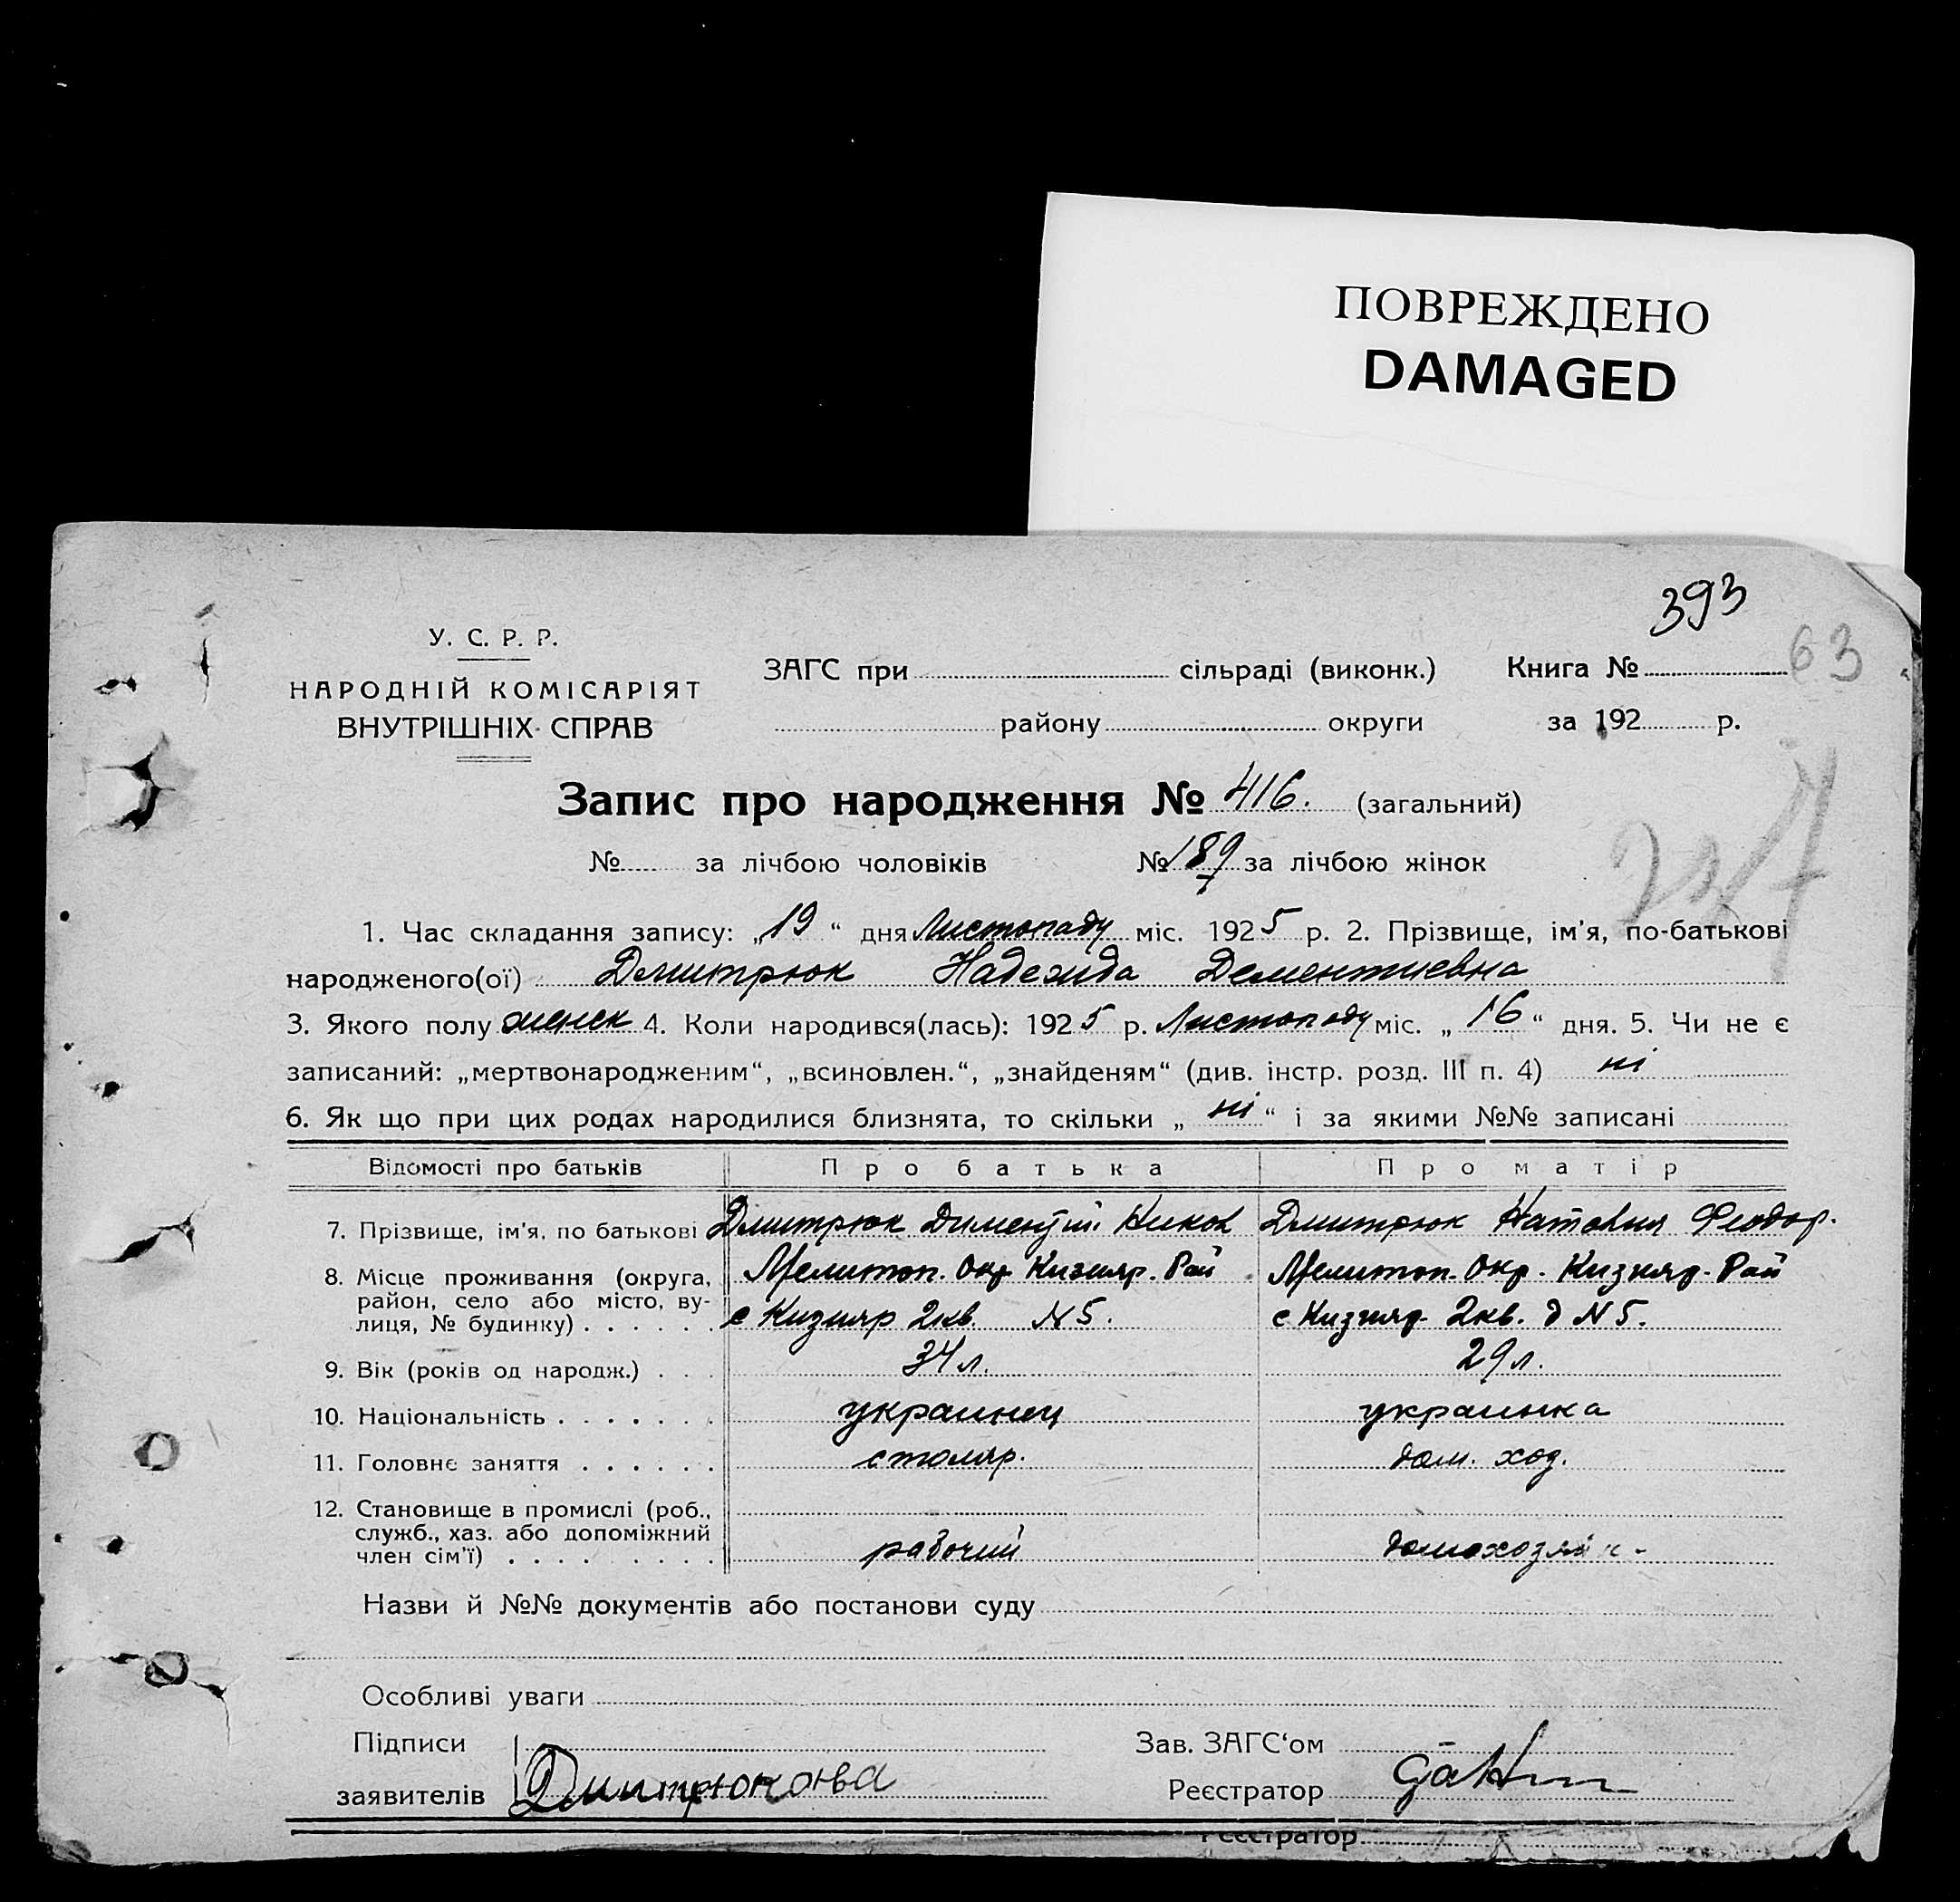 ПОВРЕЖДЕНО
DAMAGED
393
63
У. С. Р. Р.
НАРОДНІЙ КОМІСАРІЯТ
ВНУТРІШНІХ СПРАВ
ЗАГС при сільраді (виконк.) Книга №
району округи за 192 р.
Запис про народження № 416. (загальний)
№ за лічбою чоловіків № 189 за лічбою жінок
1. Час складання запису: „19“ дня Листопаду міс. 1925 р. 2. Прізвище, ім'я, по-батькові
народженого(ої) Дмитрюк Надежда Дементиевна
3. Якого полу женск 4. Коли народився(лась): 1925 р. Листопаду міс. „16“ дня. 5. Чи не є
записаний: „мертвонародженим“, „всиновлен.“, „знайденям“ (див. інстр. розд. III п. 4) ні
6. Як що при цих родах народилися близнята, то скільки „ні“ і за якими №№ записані
Відомості про батьків Про батька Про матір
7. Прізвище, ім'я, по батькові Дмитрюк Дементій Никон Дмитрюк Наталия Феодор.
8. Місце проживання (округа, Мелитоп. Окр Кизияр. Рай Мелитоп. Окр. Кизияр. Рай
район, село або місто, ву-
лиця, № будинку) с Кизияр 2кв. N 5. с Кизияр 2кв. д N 5.
9. Вік (років од народж.) 34 л. 29 л.
10. Національність украинец украинка
11. Головнє заняття столяр. дом. хоз.
12. Становище в промислі (роб.,
служб., хаз. або допоміжний
член сім'ї) рабочий домохозяйк-
Назви й №№ документів або постанови суду
Особливі уваги
Підписи Зав. ЗАГС'ом
заявителів Дмитрюкова Реєстратор
Реєстратор